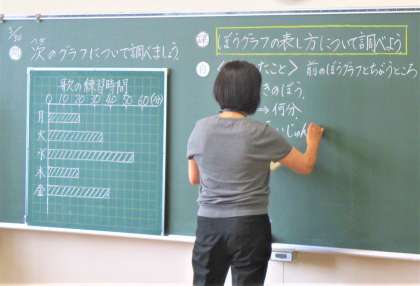 次のグラフについて調べましょう。
歌の練習時間
0 10 20 30 40 50 60 (分)
月
火
水
木
金
ぼうグラフの表し方について調べよう
たこと〉 前のぼうグラフとちがうところ
きのぼう。
⇒ 何分
じゅん